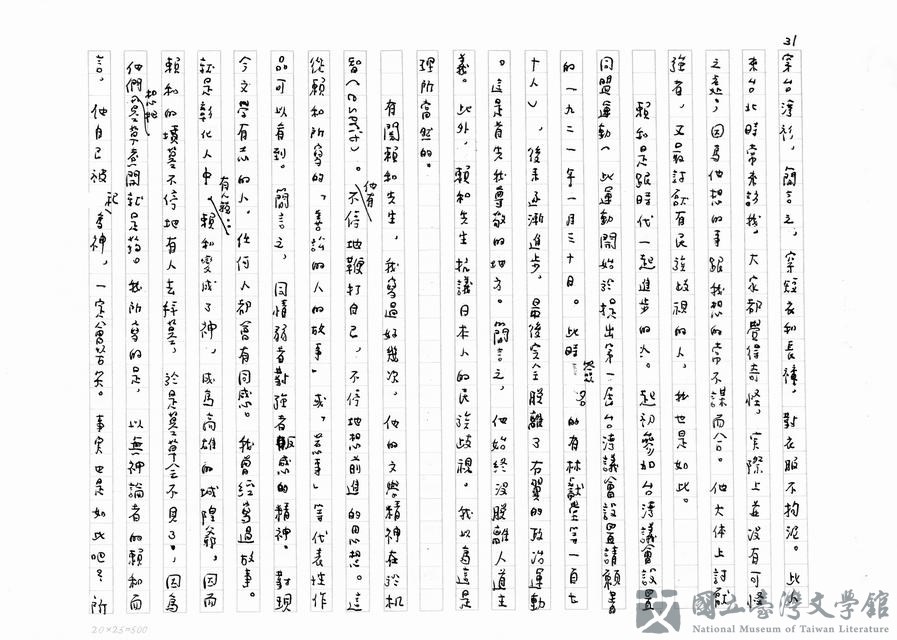 31
穿台灣衫，簡言之，穿短衣和長褲，對衣服不拘泥。此人
來台北時常來訪我。大家都覺得奇怪，實際上並沒有可怪
之處，因為他想的事跟我想的常不謀而合。他大体上討厭
強者，又最討厭有民族歧視的人，我也是如此。
賴和是跟時代一起進步的人。起初參加台灣議會設置
同盟運動（此運動開始於提出第一屆台灣議會設置請願書
的一九二一年一月三十日。此時簽名的有林獻堂等一百七
十人），後來逐漸進步，最後完全脫離了右翼的政治運動
。這是首先我尊敬的地方。簡言之，他始終沒脫離人道主
義。此外，賴和先生抗議日本人的民族歧視。我以為這是
理所當然的。
有關賴和先生，我寫過好幾次，他的文學精神在於机
智（esprit）。他有不停地鞭打自己，不停地想前進的思想。這
從賴和所寫的「善訟的人的故事」或「惹事」等代表性作
品可以看到。簡言之，同情弱者對強者反感的精神。對現
今文學有志的人，任何人都會有同感。我曾經寫過故事。
就是彰化人中，有人說：賴和變成了神，成為高雄的城隍爺，因而
賴和的墳墓不停地有人去拜墓，於是墓草全不見了。因為
他們想把墓草煮開就是藥。我所寫的是，以無神論者的賴和而
言，他自己被祀為神，一定會苦笑。事實也是如此吧？所
20×25=500
國立臺灣文學館
National Museum of Taiwan Literature